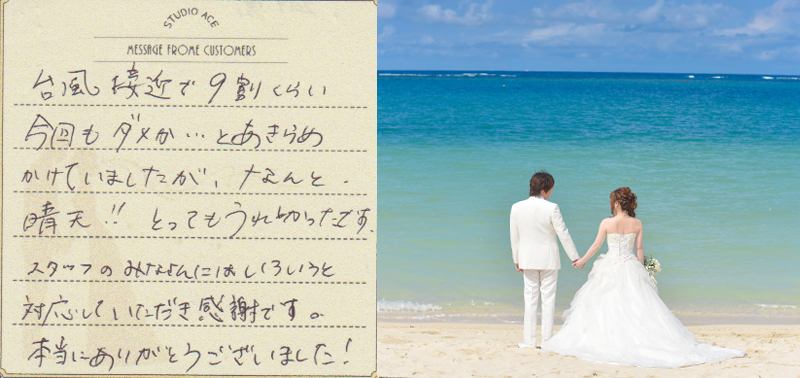 STUDIO ACE
MESSAGE FROME CUSTOMERS
台風接近で9割くらい
今回もダメか…とあきらめ
かけていましたが、なんと、
晴天!! とってもうれしかったです。
スタッフのみなさんにはいろいろと
対応していただき感謝です。
本当にありがとうございました!